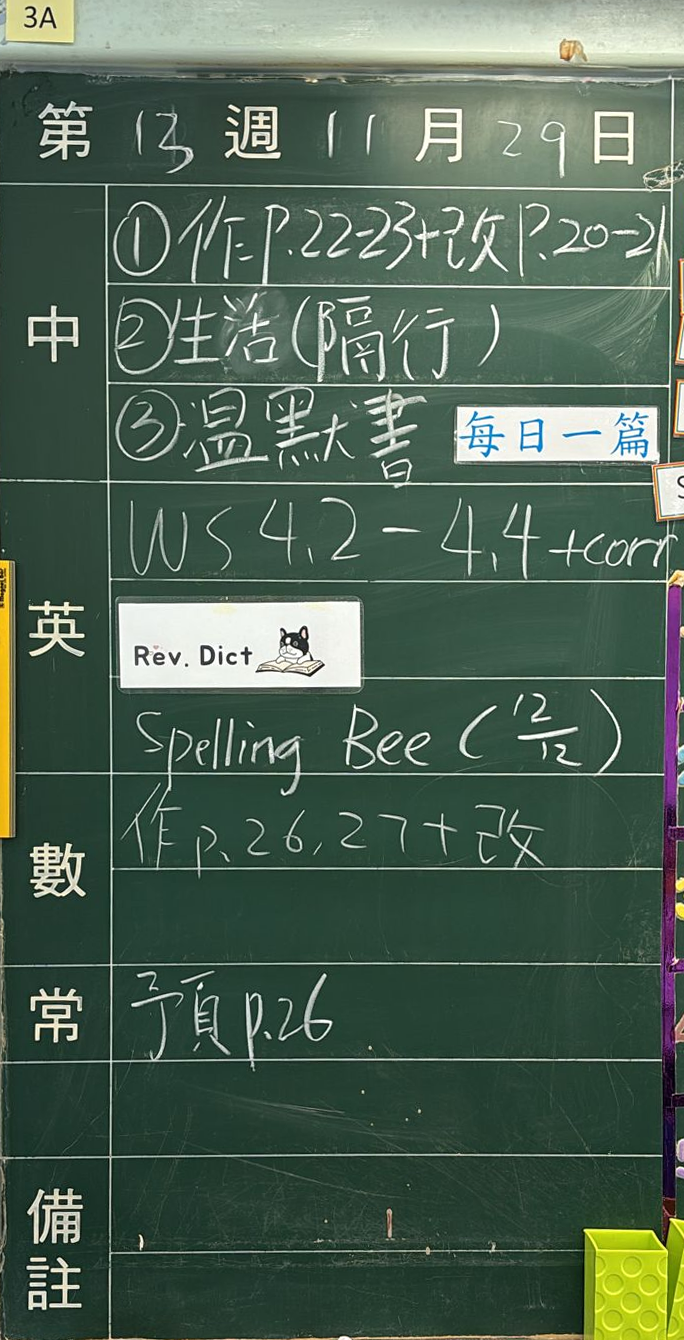 3A
第 13 週 11 月 29 日
中
①作P.22-23+改P.20-21
②生活(隔行)
③溫默書 每日一篇
英
WS 4.2 - 4.4 +corr
Rev. Dict
Spelling Bee (12/12)
數
作p.26,27+改
常
預p.26
備註